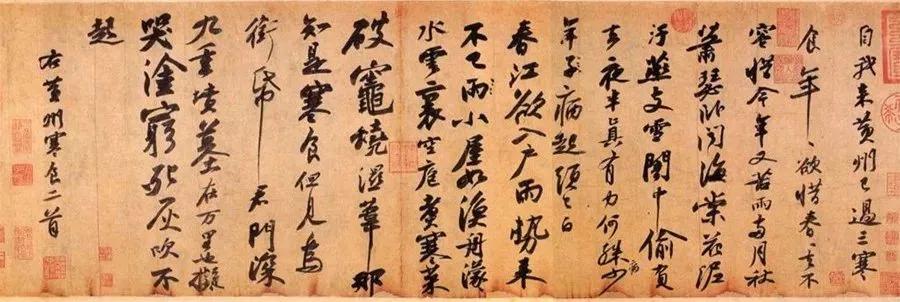 自我來黃州已過三寒
食年〻欲惜春〻去不
容惜今年又苦雨兩月秋
蕭瑟卧聞海棠花泥
汙燕支雪闇中偷負
去夜半真有力何殊病少
年子病起頭已白
春江欲入户雨勢來
不已雨小屋如漁舟濛〻
水雲裏空庖煮寒菜
破竈燒濕葦那
知是寒食但見烏
銜帋君門深
九重墳墓在万里也擬
哭塗窮死灰吹不
起
右黃州寒食二首